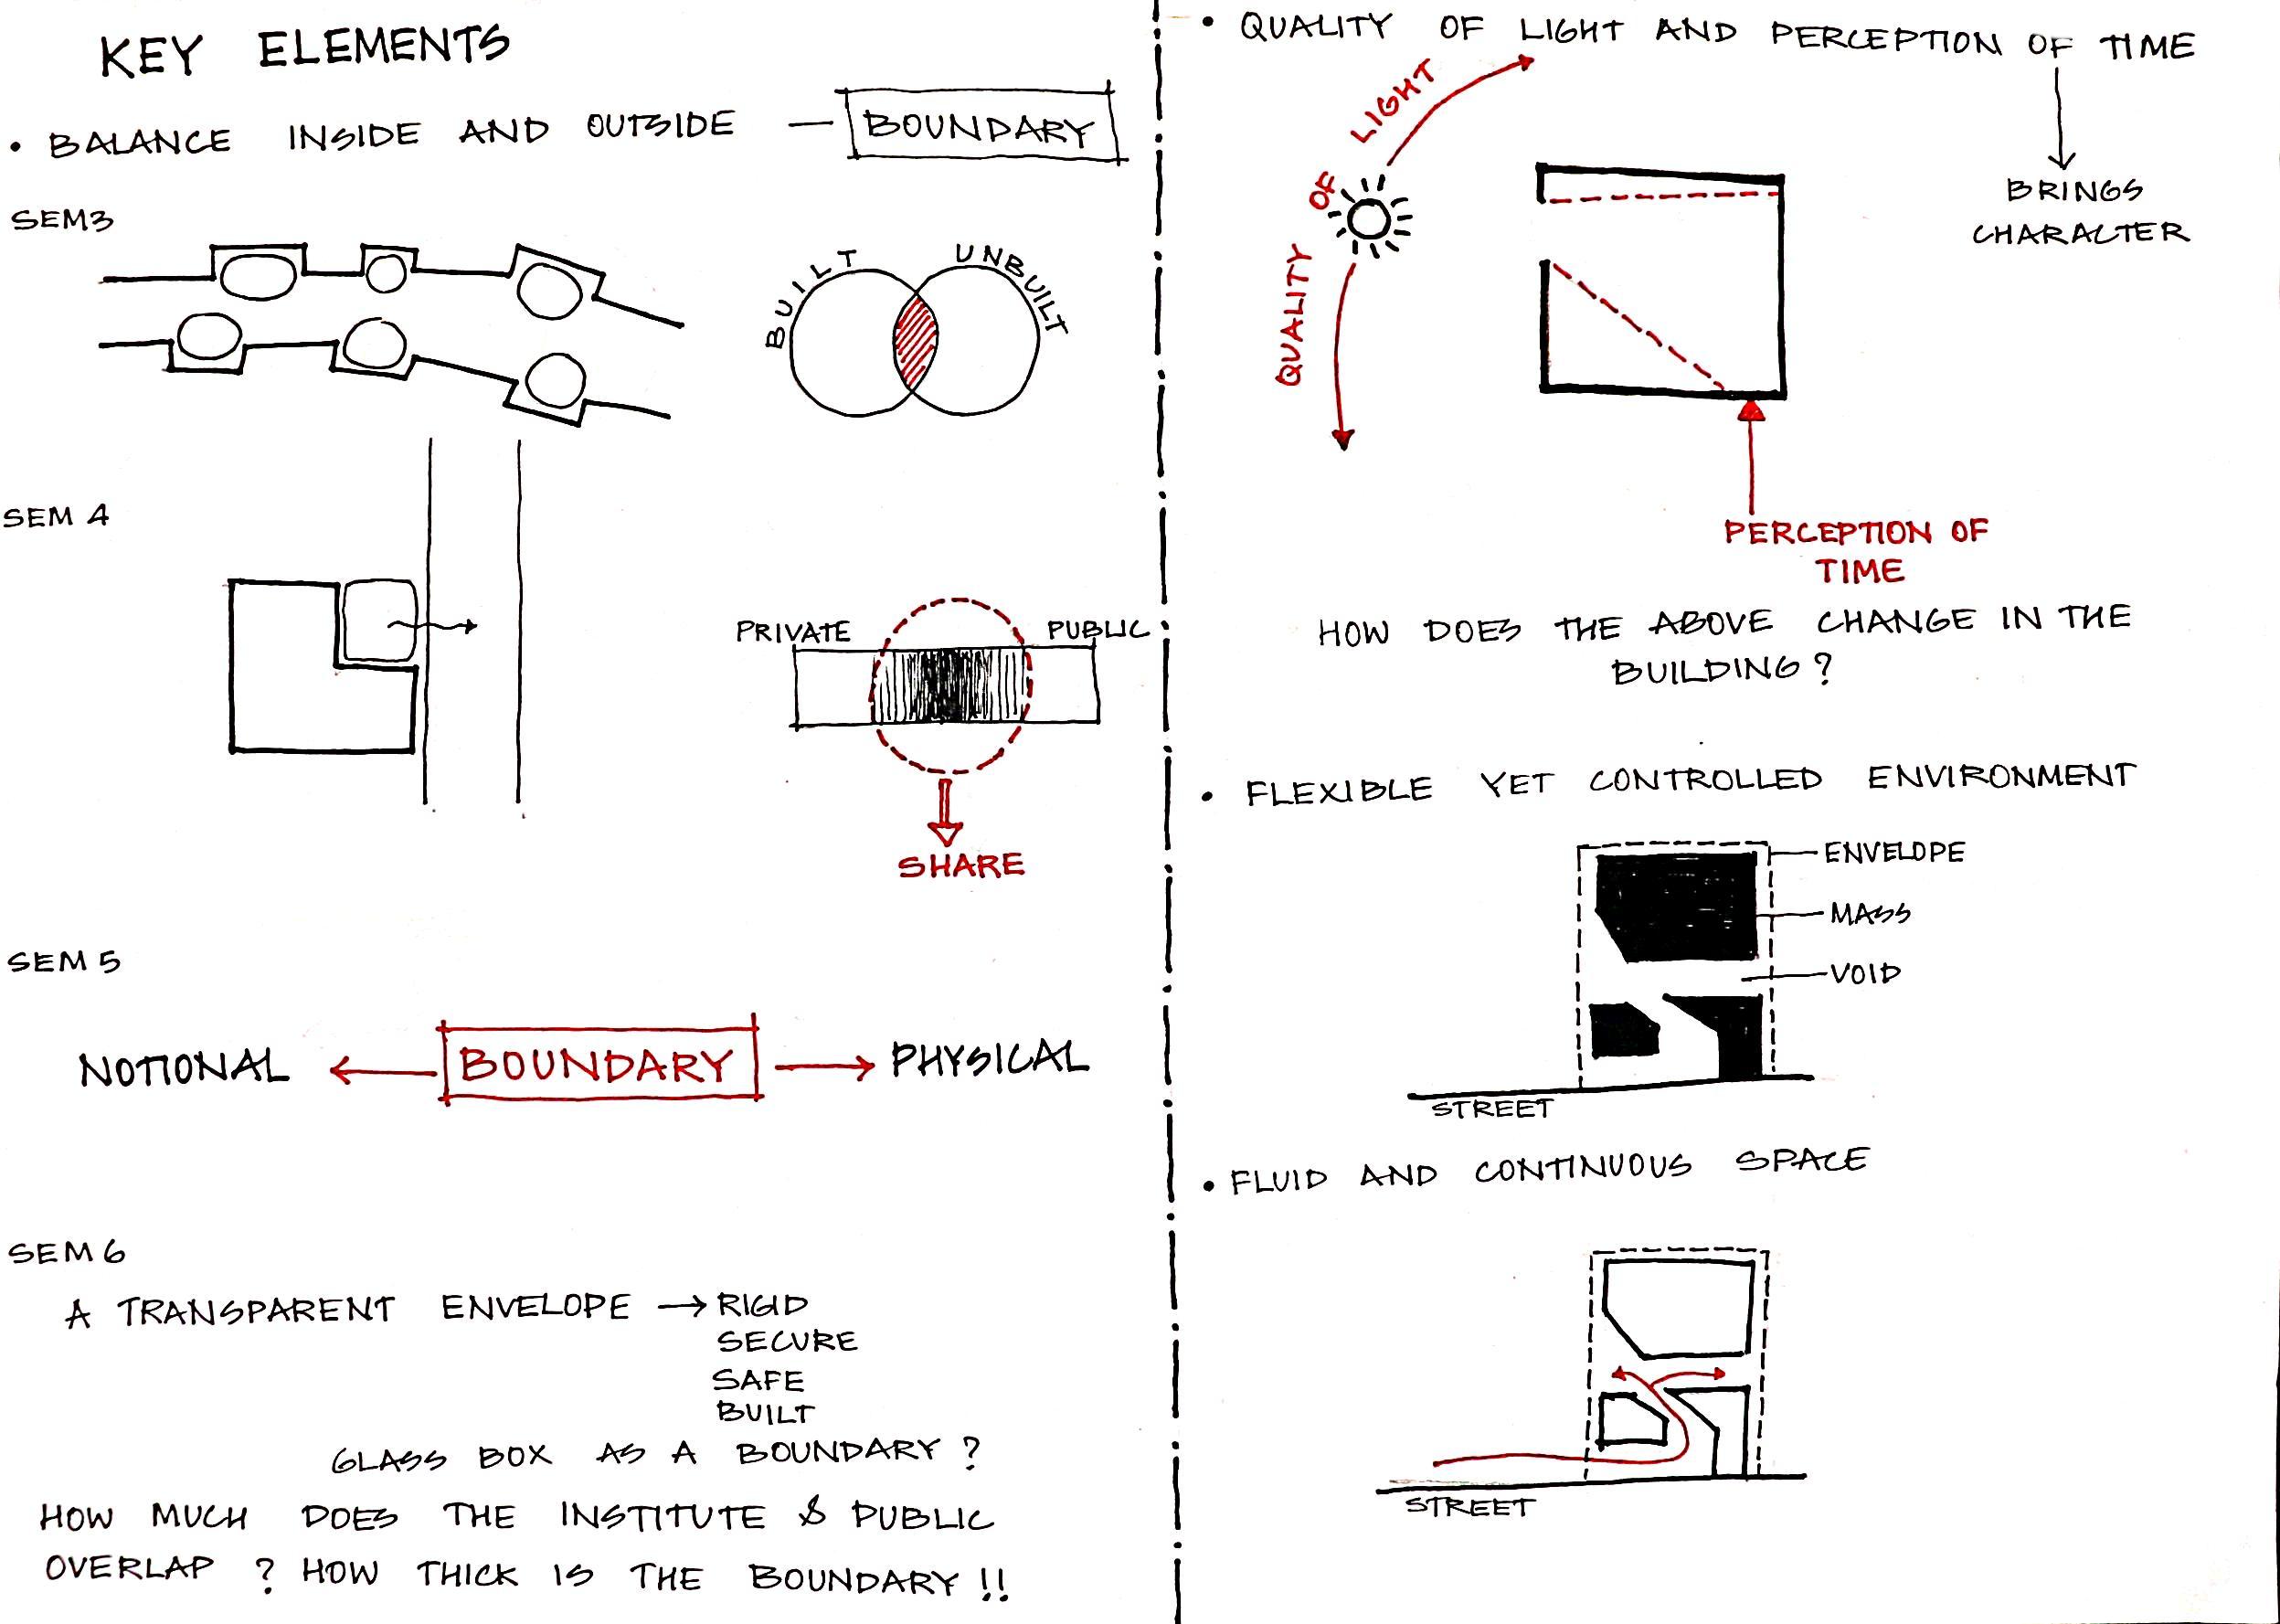 KEY ELEMENTS
• BALANCE INSIDE AND OUTSIDE — BOUNDARY
SEM3
BUILT
UNBUILT
SEM 4
PRIVATE
PUBLIC
SHARE
SEM 5
NOTIONAL ← BOUNDARY → PHYSICAL
SEM 6
A TRANSPARENT ENVELOPE → RIGID
SECURE
SAFE
BUILT
GLASS BOX AS A BOUNDARY ?
HOW MUCH DOES THE INSTITUTE & PUBLIC
OVERLAP ? HOW THICK IS THE BOUNDARY !!
• QUALITY OF LIGHT AND PERCEPTION OF TIME
BRINGS
CHARACTER
QUALITY OF LIGHT
PERCEPTION OF
TIME
HOW DOES THE ABOVE CHANGE IN THE
BUILDING ?
• FLEXIBLE YET CONTROLLED ENVIRONMENT
ENVELOPE
MASS
VOID
STREET
• FLUID AND CONTINUOUS SPACE
STREET